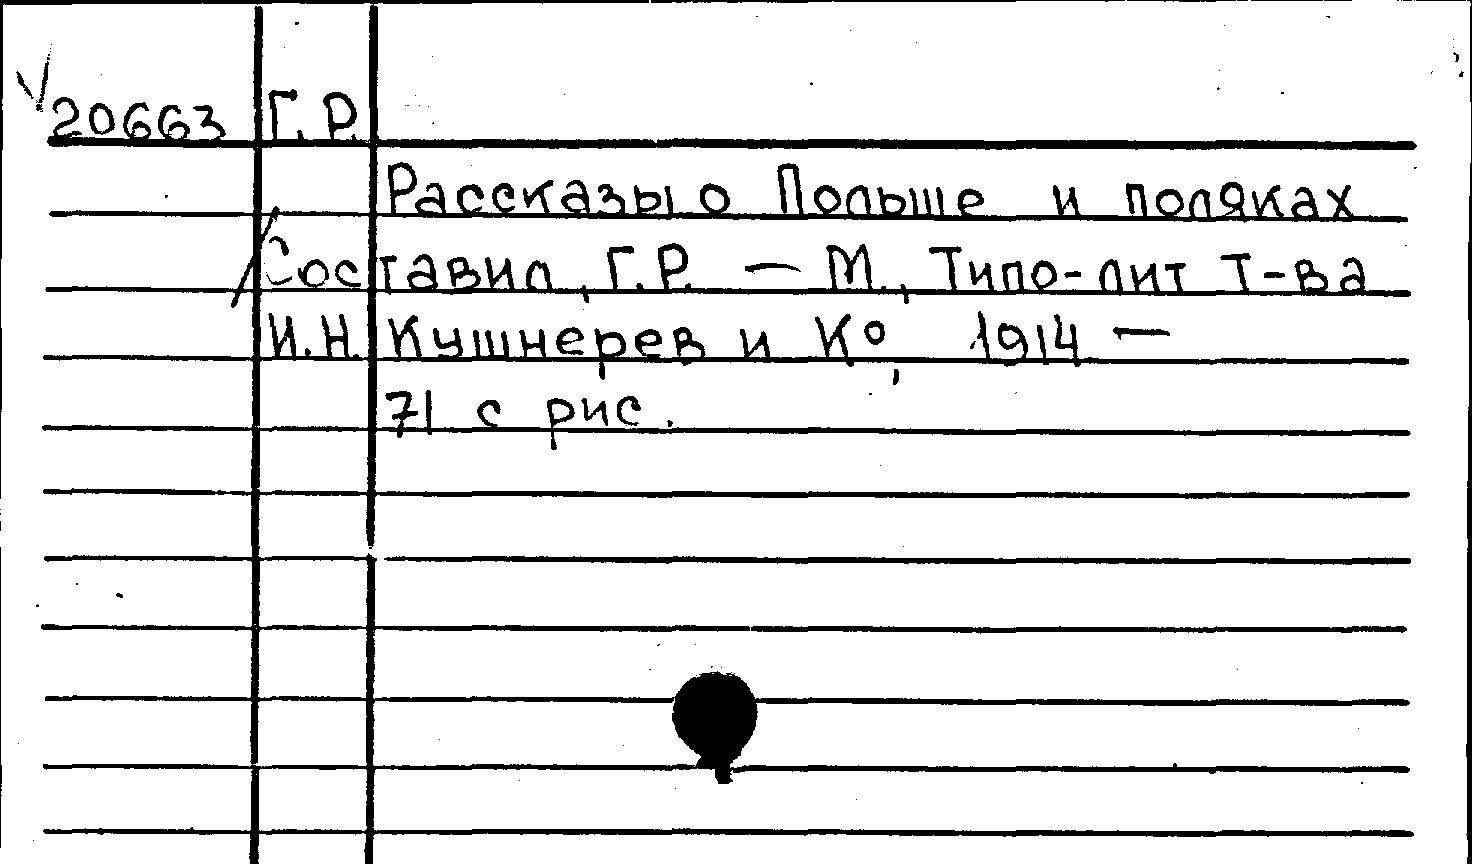 20663 Г.Р.
Рассказы о Польше и поляках
Составил, Г.Р. — М., Типо-лит Т-ва
И.Н. Кушнерев и Ко, 1914 —
71 с рис.